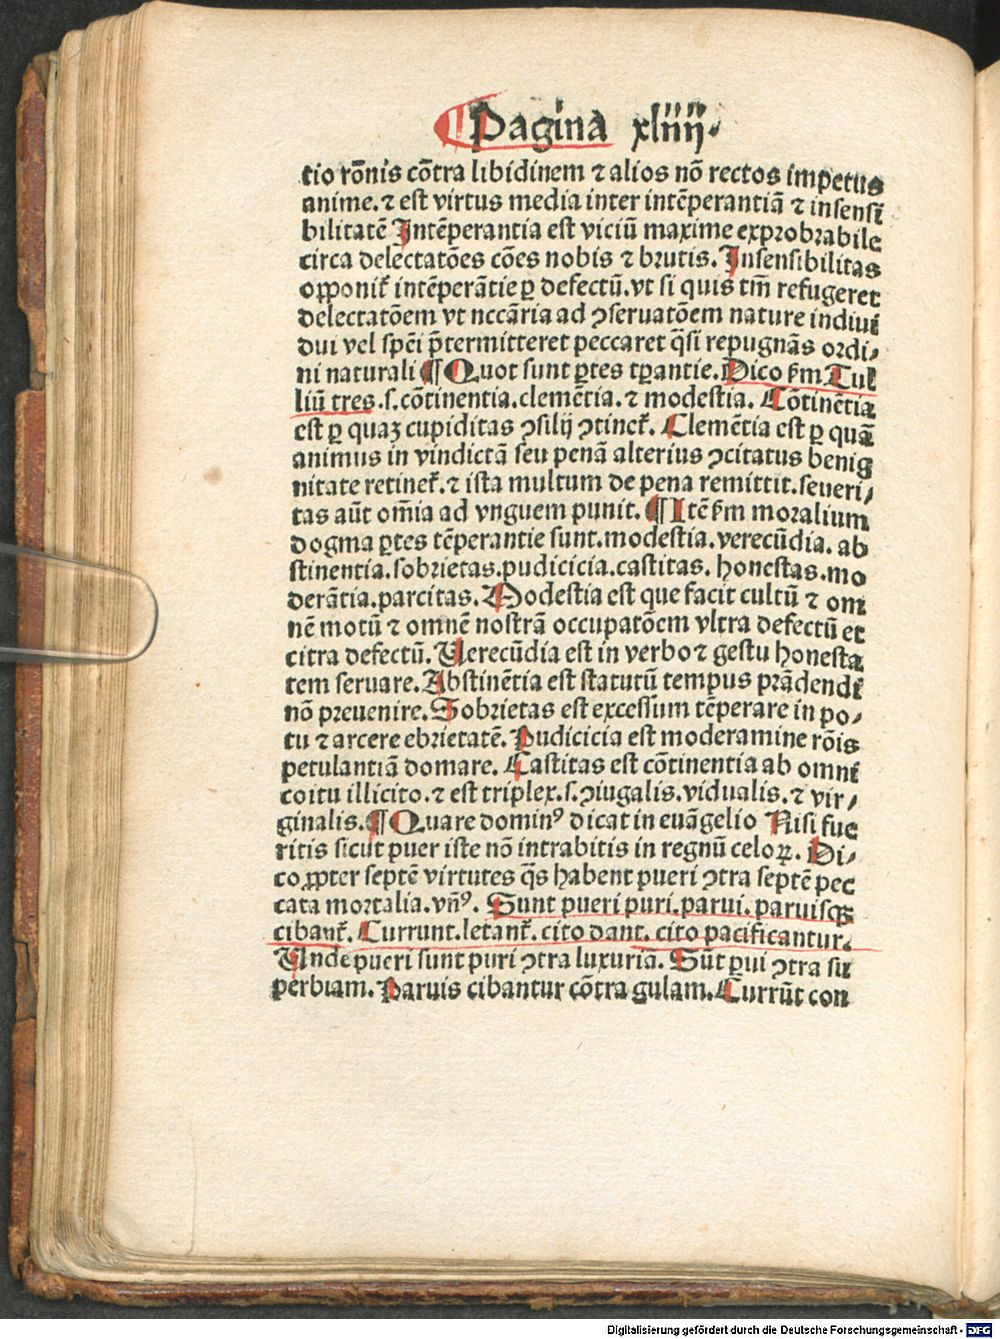 ¶ Pagina xliiij.
tio rōnis cōtra libidinem ⁊ alios nō rectos impetus
anime. ⁊ est virtus media inter intēperantiā ⁊ insensi
bilitatē Intēperantia est viciū maxime exprobrabile
circa delectatōes cōes nobis ⁊ brutis. Insensibilitas
opponit᷑ intēperātie ꝑ defectū. vt si quis tm̄ refugeret
delectatōem vt nccāria ad ꝯseruatōem nature indiui
dui vel spēi p̄termitteret peccaret q̄si repugnās ordi⸗
ni naturali ¶ Quot sunt ꝑtes tꝑantie. Dico ẜm Tul
liū tres. s. cōtinentia. clemētia. ⁊ modestia. Cōtinētia
est ꝑ quaꝫ cupiditas ꝯsilij ꝯtinet᷑. Clemētia est ꝑ quā
animus in vindictā seu penā alterius ꝯcitatus benig
nitate retinet᷑. ⁊ ista multum de pena remittit. seueri⸗
tas aūt om̄ia ad vnguem punit. ¶ Itē ẜm moralium
dogma ꝑtes tēperantie sunt. modestia. verecūdia. ab
stinentia. sobrietas. pudicicia. castitas. honestas. mo
derātia. parcitas. Modestia est que facit cultū ⁊ om
nē motū ⁊ omnē nostrā occupatōem vltra defectū et
citra defectū. Uerecūdia est in verbo ⁊ gestu honesta
tem seruare. Abstinētia est statutū tempus prādendi
nō preuenire. Sobrietas est excessum tēperare in po⸗
tu ⁊ arcere ebrietatē. Pudicicia est moderamine rōis
petulantiā domare. Castitas est cōtinentia ab omni
coitu illicito. ⁊ est triplex. s. ꝯiugalis. vidualis. ⁊ vir⸗
ginalis. ¶ Quare dominꝰ dicat in euāgelio Nisi fue
ritis sicut puer iste nō intrabitis in regnū celoꝝ. Di⸗
co ꝓpter septē virtutes q̄s habent pueri ꝯtra septē pec
cata mortalia. vn̄ꝰ. Sunt pueri puri. parui. paruisqꝫ
cibant᷑. Currunt. letant᷑. cito dant. cito pacificantur.
Unde pueri sunt puri ꝯtra luxuriā. Sūt ꝑui ꝯtra su
perbiam. Paruis cibantur cōtra gulam. Currūt con